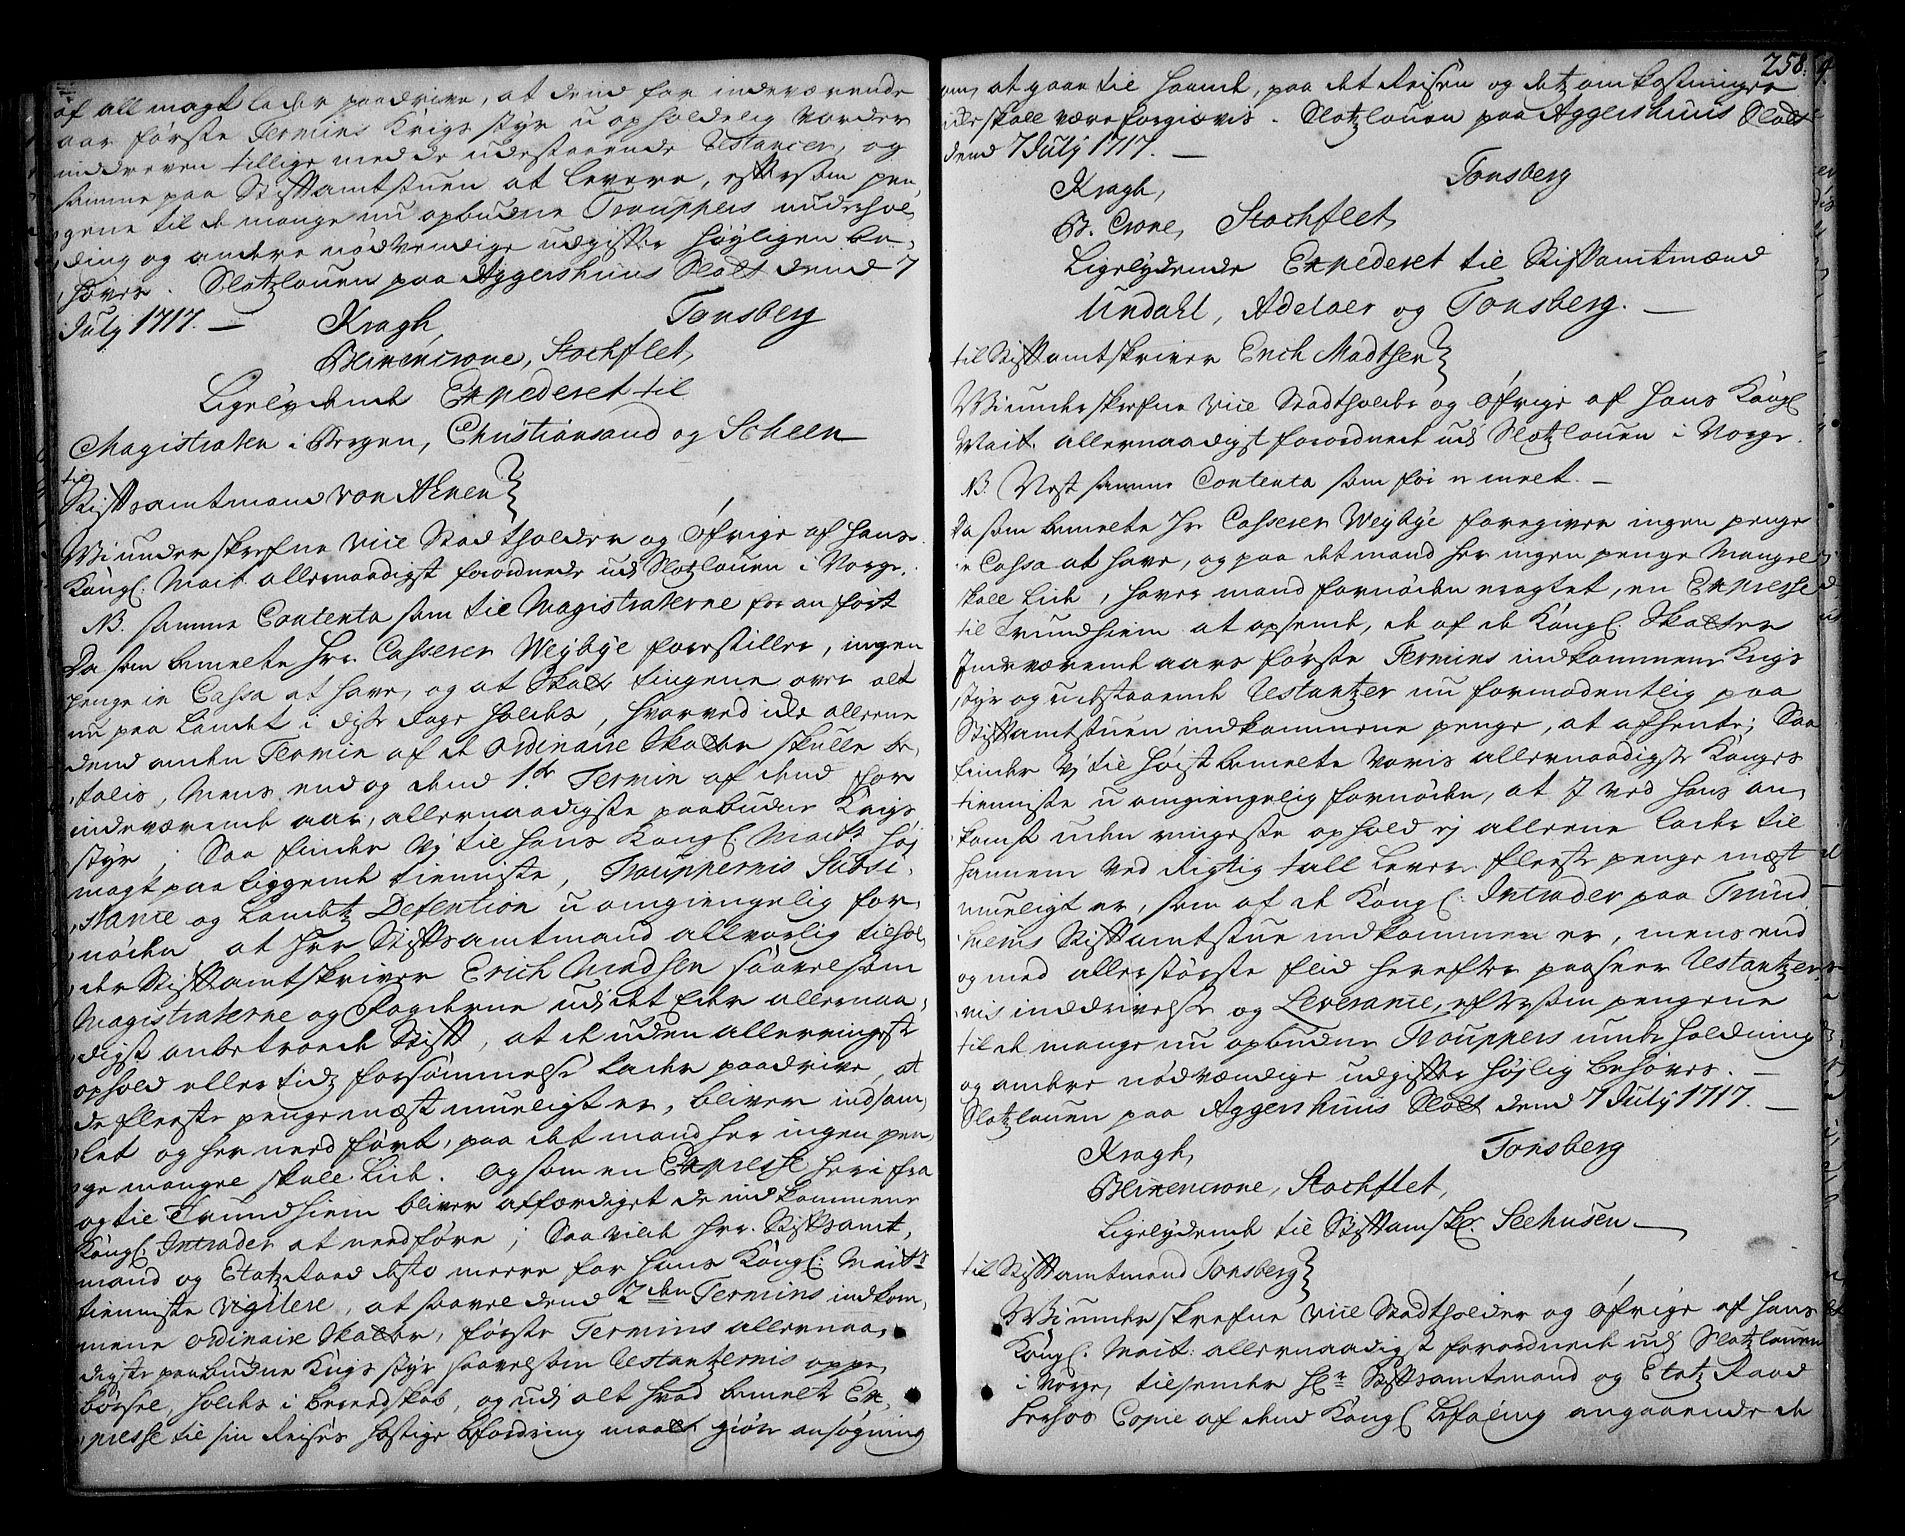 af all magt lader paadrive, at dend for indeværende
aar første Termins Krigs styr u opholdelig vorder
inddreven tillige med de udestaaende Restancer, og
samme paa Stiftamtstuen at levere, eftersom pen,
gene til de mange nu opbudne Trouppers underhol,
ding og andre nødvendige udgifter høyligen be,
høves. Slotzlouen paa Aggershuus Slott dend 7
July 1717. — Kragh, Tonsberg
Blixencrone, Stochflet,
Ligelydende Expederet til
Magistraten i Bergen, Christiansand og Scheen
til
Stiftsamtmand von Ahnen
Wi underskrefne vice Stadtholder og Øfrige af Hans
Kongl. Mait. allernaadigst forordnede udj Slotzlouen i Norge.
NB. samme Contenta som til Magistraterne for anført
Da som bemelte Hr. Casserer Weybye forestiller, ingen
penge in Cassa at have, og at Skatte tingene over alt
nu paa Landet i disse dage holdes, hvorved icke allene
dend anden Termin af de ordinaire Skatter skulle be,
tales, Mens end og dend 1ste Termin af dend for
indeværende aar, allernaadigste paabudne Krigs
styr; Saa finder Vj til Hans Kongl. Maits. høj
magt paa liggende tienniste, Trouppernis Subsi,
stance og Landetz Defention u omgiengelig for,
nøden at Herr Stiftsamtmand allvorlig tilhol,
der Stiftamtskriver Erich Madsen saavelsom
Magistraterne og Fogderne udj det Eder allernaa,
digst anbetroede Stift, at de uden allerringeste
ophold eller tidz forsømmelse lader paadrive, at
de fleeste penge mæst mueligt er, bliver indsam,
let og her ned ført, paa det mand her ingen pen,
ge mangel skall lide. Og som en Expresse heri fra
og til Trundhiem bliver affordiget de indkommene
Kongl. Intrader at nedføre; Saa vilde Hr. Stiftsamt,
mand og Etatz Raad desto meere for Hans Kongl. Maits
tienniste vigilere, at saavel dend 2den Termins indkom,
mene ordinaire Skatter, første Termins allernaa,
digste paabudne Krigs styr saavelsom Restantzernis oppe,
børsel, holdes i beredskab, og udj alt hvad bemelte Ex,
presse til sin Reises hastige befordring maatte giøre ansøgning
258.
om, at gaae til haande, paa det Reisen og detz omkostninger
icke skall være forgiævis. Slotzlouen paa Aggershuus Slott
dend 7 July 1717. —
Kragh, Tonsberg
B. Crone, Stochflet,
Ligelydende Expederet til Stiftamtmænd
Undahl, Adelaer og Tonsberg. —
til Stiftamtskriver Erich Madtsen
Wi underskrefne vice Stadtholder og Øfrige af Hans Kongl.
Mait. allernaadigst forordnede udj Slotzlouen i Norge.
NB. Vest samme Contenta som før er melt. —
Da som bemelte Hr. Casserer Weybye foregiver ingen penge
in Cassa at have, og paa det mand her ingen penge Mangel
skall lide, haver mand fornøden eragtet, en Expresse
til Trundhiem at opsende, de af de Kongl. Skatter
Indeværende aars første Termins indkommene Krigs
styr og udestaaende Restantzer nu formodentlig paa
Stiftamtstuen indkommene penge, at afhente; Saa
finder Vj til Høist bemelte Voris allernaadigste Konges
tienniste u omgiengelig fornøden, at I ved hans an,
komst uden ringeste ophold ej allene lader til
hannem ved Rigtig tall levere fleeste penge mæst
mueligt er, som af de Kongl. Intrader paa Trund,
hiems Stiftamtstue indkommen er, mens end
og med allerstørste flid herefter paaseer Restantzer,
nis inddrivelse og Leverance, eftersom pengene
til de mange nu opbudne Trouppers underholdning
og andre nødvændige udgifter højlig behøves. —
Slotzlouen paa Aggershuus Slott dend 7 July 1717. —
Kragh, Tonsberg
Blixencrone, Stochflet,
Ligelydende til Stiftamskr. Seehusen —
til Stiftamtmand Tonsberg
Wi underskrefne vice Stadtholder og Øfrige af Hans
Kongl. Mait. allernaadigst forordnede udj Slotzlouen
i Norge, tilsender Hr. Stiftsamtmand og Etatz Raad
herhos Copie af dend Kongl. befaling angaaende de